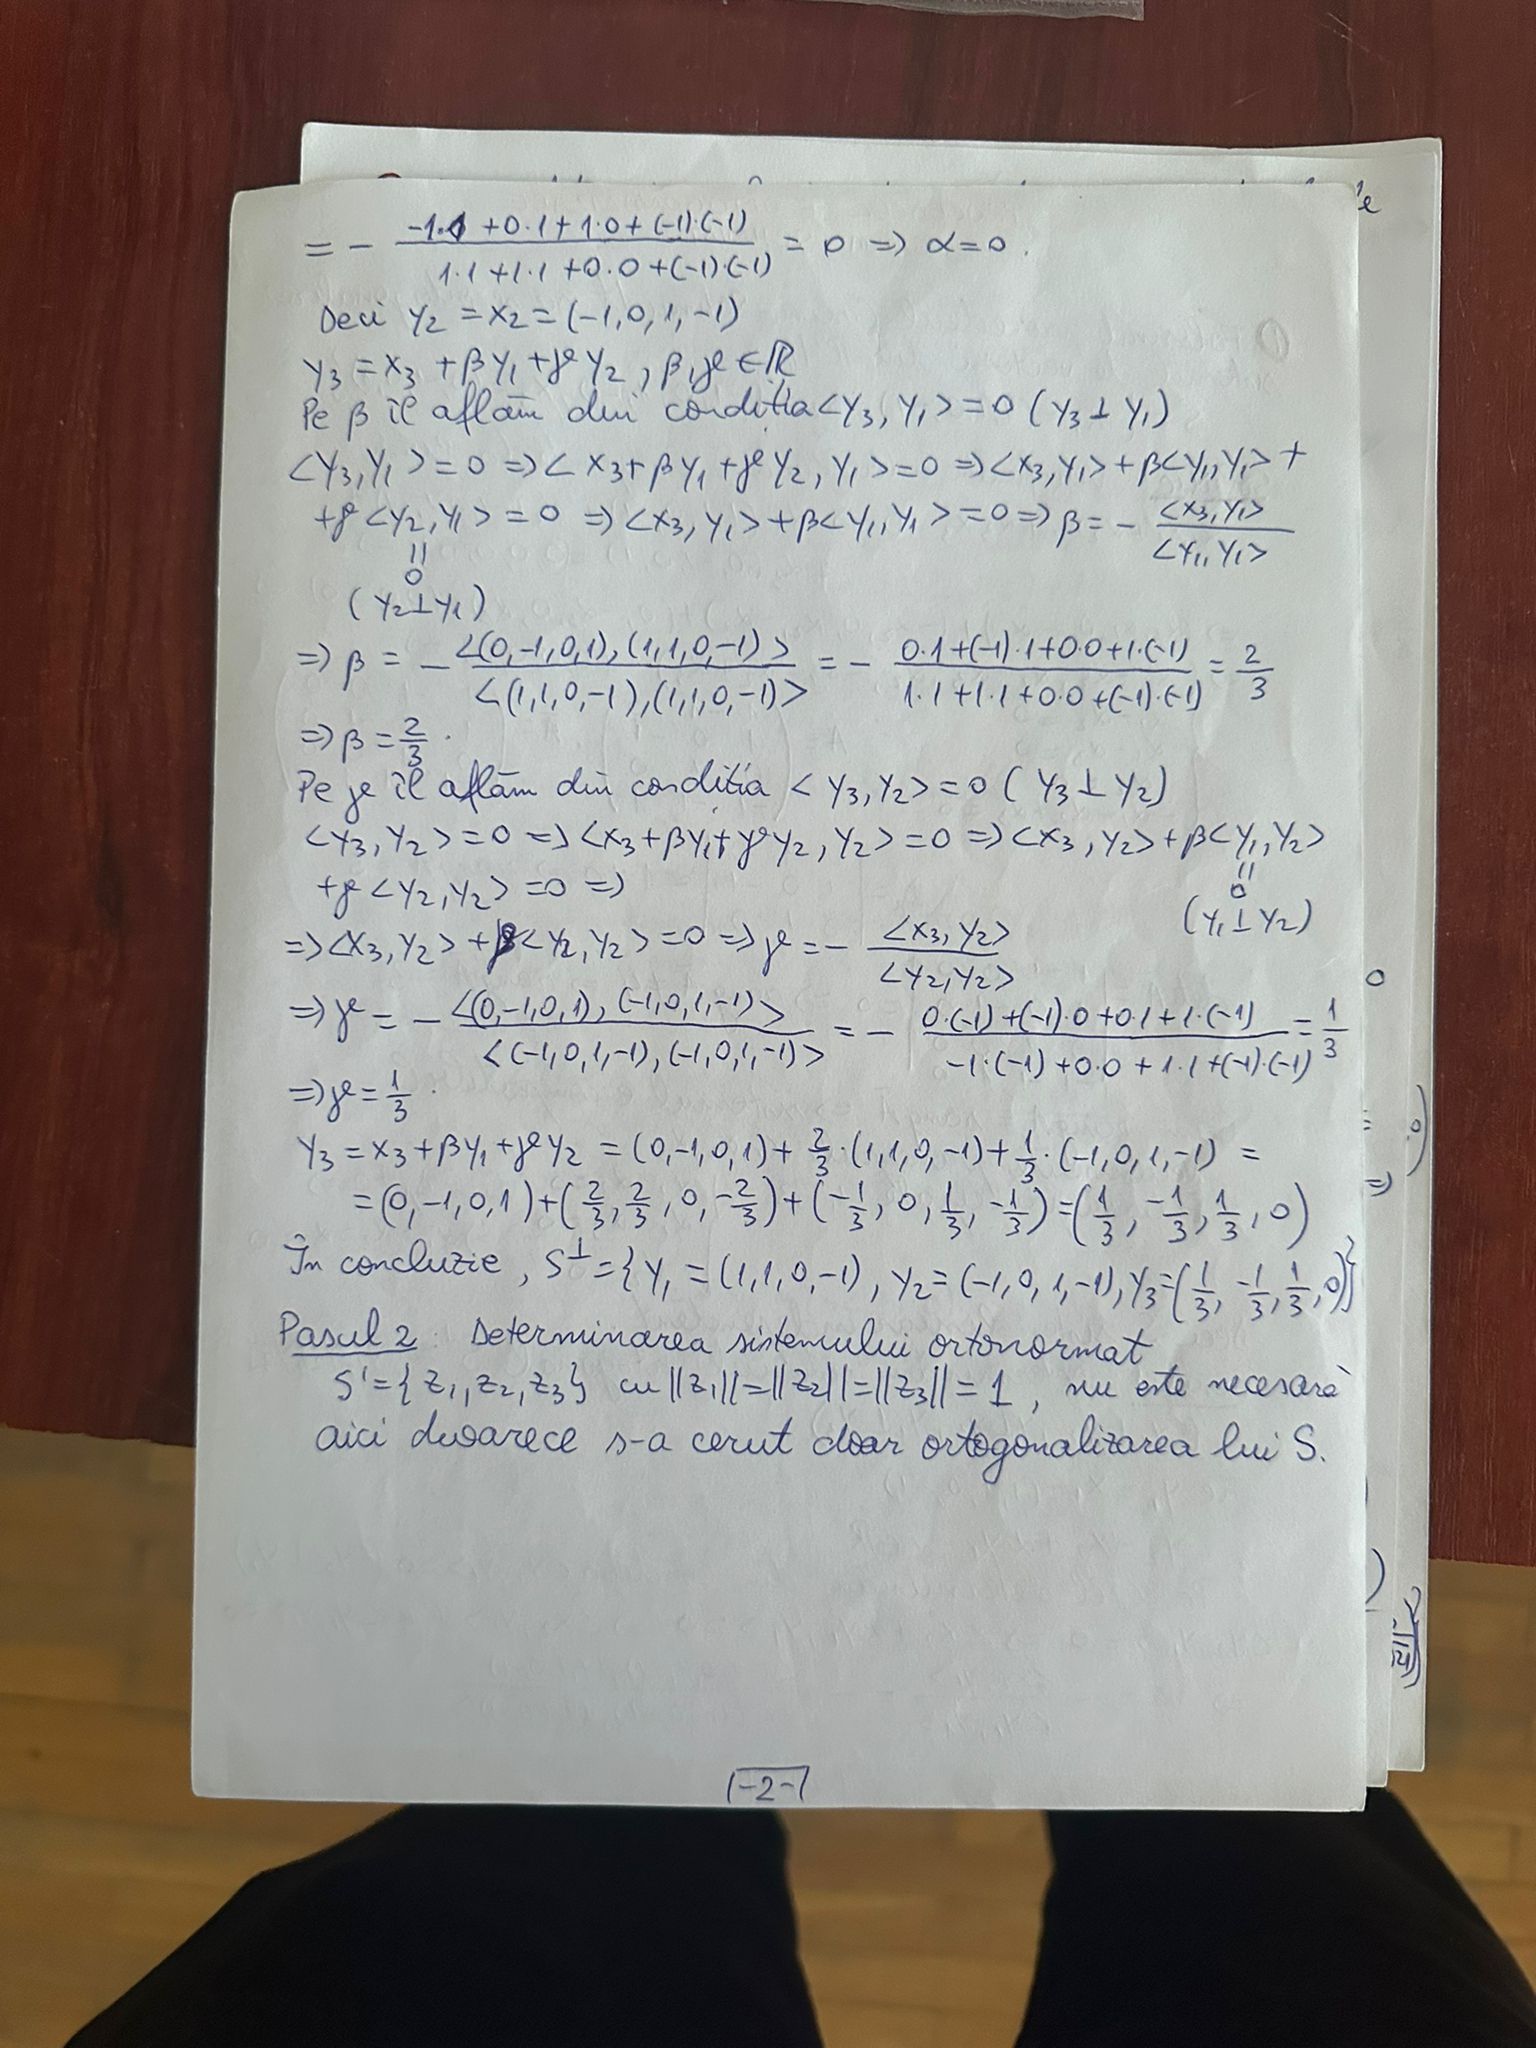 = - (-1·1 + 0·1 + 1·0 + (-1)·(-1)) / (1·1 + 1·1 + 0·0 + (-1)·(-1)) = 0 => α = 0.
Deci y₂ = x₂ = (-1, 0, 1, -1)
y₃ = x₃ + βy₁ + γy₂, β, γ ∈ ℝ
Pe β îl aflăm din condiția <y₃, y₁> = 0 (y₃ ⊥ y₁)
<y₃, y₁> = 0 => <x₃ + βy₁ + γy₂, y₁> = 0 => <x₃, y₁> + β<y₁, y₁> +
+ γ<y₂, y₁> = 0 => <x₃, y₁> + β<y₁, y₁> = 0 => β = - <x₃, y₁> / <y₁, y₁>
=
0
(y₂ ⊥ y₁)
=> β = - <(0, -1, 0, 1), (1, 1, 0, -1)> / <(1, 1, 0, -1), (1, 1, 0, -1)> = - (0·1 + (-1)·1 + 0·0 + 1·(-1)) / (1·1 + 1·1 + 0·0 + (-1)·(-1)) = 2/3
=> β = 2/3.
Pe γ îl aflăm din condiția <y₃, y₂> = 0 (y₃ ⊥ y₂)
<y₃, y₂> = 0 => <x₃ + βy₁ + γy₂, y₂> = 0 => <x₃, y₂> + β<y₁, y₂>
=
0
(y₁ ⊥ y₂)
+ γ<y₂, y₂> = 0 =>
=> <x₃, y₂> + γ<y₂, y₂> = 0 => γ = - <x₃, y₂> / <y₂, y₂>
=> γ = - <(0, -1, 0, 1), (-1, 0, 1, -1)> / <(-1, 0, 1, -1), (-1, 0, 1, -1)> = - (0·(-1) + (-1)·0 + 0·1 + 1·(-1)) / (-1·(-1) + 0·0 + 1·1 + (-1)·(-1)) = 1/3
=> γ = 1/3.
y₃ = x₃ + βy₁ + γy₂ = (0, -1, 0, 1) + 2/3·(1, 1, 0, -1) + 1/3·(-1, 0, 1, -1) =
= (0, -1, 0, 1) + (2/3, 2/3, 0, -2/3) + (-1/3, 0, 1/3, -1/3) = (1/3, -1/3, 1/3, 0)
În concluzie, S⊥ = {y₁ = (1, 1, 0, -1), y₂ = (-1, 0, 1, -1), y₃ = (1/3, -1/3, 1/3, 0)}
Pasul 2: Determinarea sistemului ortonormat
S' = {z₁, z₂, z₃} cu ||z₁|| = ||z₂|| = ||z₃|| = 1, nu este necesară
aici deoarece s-a cerut doar ortogonalizarea lui S.
-2-